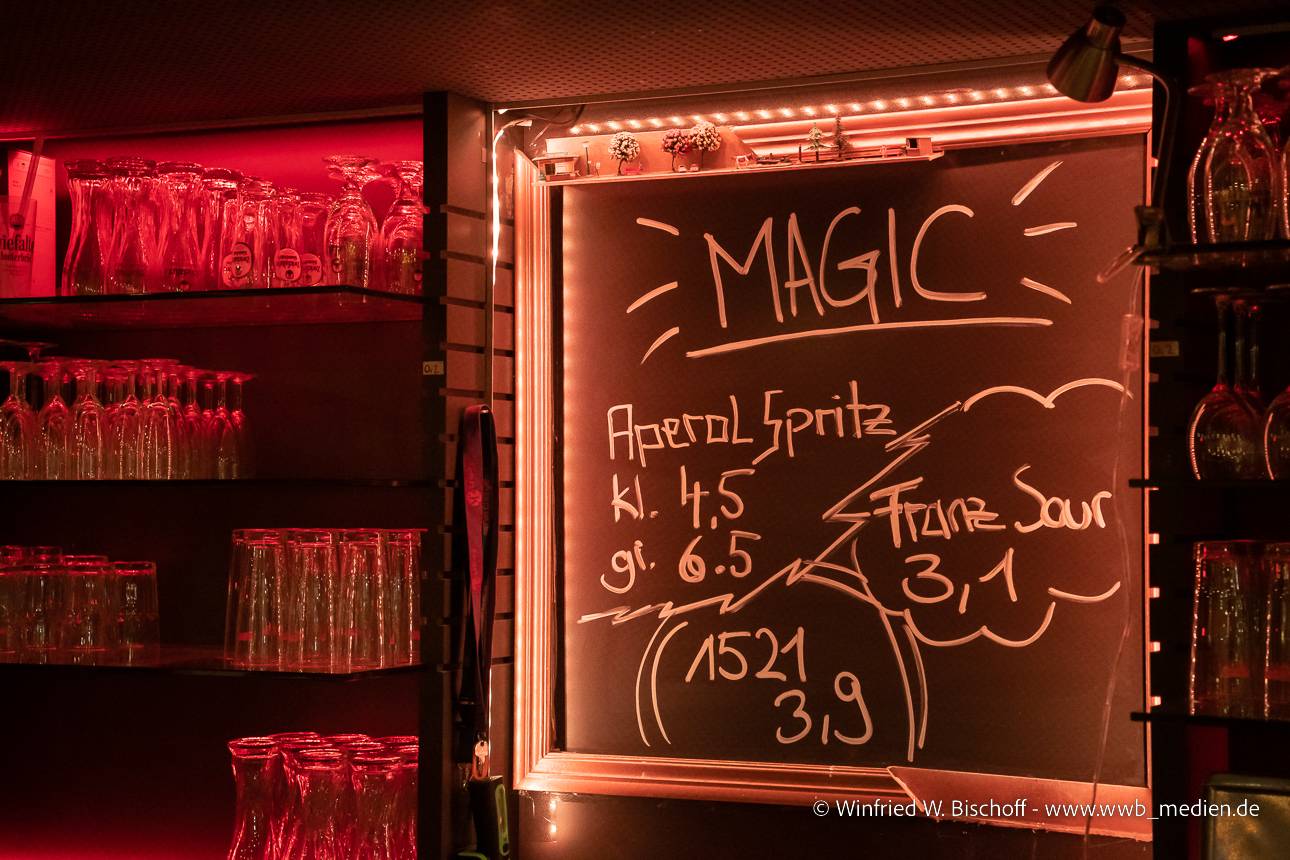 MAGIC
Aperol Spritz
kl. 4,5
gr. 6.5
Franz Sour
3,1
1521
3,9
0,2
© Winfried W. Bischoff - www.wwb_medien.de